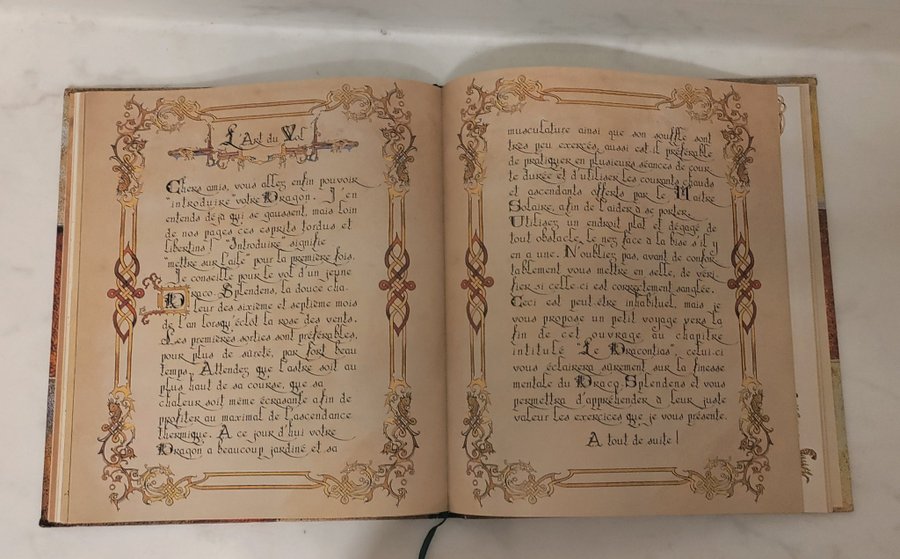 L'Art du Vol
Chers amis, vous allez enfin pouvoir
"introduire" votre Dragon. J'en
entends déjà qui se gaussent, mais loin
de nos pages ces esprits tordus et
libertins ! "Introduire" signifie
"mettre sur l'aile" pour la première fois.
Je conseille pour le vol d'un jeune
Draco Splendens, la douce cha-
leur des sixième et septième mois
de l'an lorsqu'éclot la rose des vents.
Les premières sorties sont préférables,
pour plus de sûreté, par fort beau
temps. Attendez que l'astre soit au
plus haut de sa course, que sa
chaleur soit même écrasante afin de
profiter au maximal de l'ascendance
thermique. A ce jour d'hui votre
Dragon a beaucoup jardiné et sa
musculature ainsi que son souffle sont
très peu exercés, aussi est-il préférable
de pratiquer en plusieurs séances de cour-
te durée et d'utiliser les courants chauds
et ascendants offerts par le Maître
Solaire, afin de l'aider à se porter.
Utilisez un endroit plat et dégagé de
tout obstacle, le nez face à la bise s'il y
en a une. N'oubliez pas, avant de confor-
tablement vous mettre en selle, de véri-
fier si celle-ci est correctement sanglée.
Ceci est peut-être inhabituel, mais je
vous propose un petit voyage vers la
fin de cet ouvrage au chapitre
intitulé "Le Dracontias", celui-ci
vous éclairera sûrement sur la finesse
mentale du Draco Splendens et vous
permettra d'appréhender à leur juste
valeur les exercices que je vous présente.
A tout de suite !